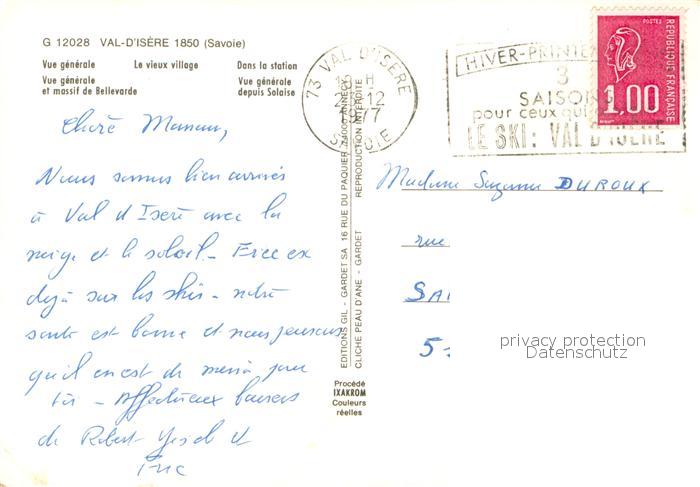 G 12028 VAL-D'ISÈRE 1850 (Savoie)
Vue générale Le vieux village Dans la station
Vue générale
et massif de Bellevarde
Vue générale
depuis Solaise
Chère Maman,
Nous sommes bien arrivés
à Val d'Isère avec la
neige et le soleil - Eric est
déjà sur les skis - notre
santé est bonne et nous pensons
qu'il en est de même pour
toi - Affectueux baisers
de Robert et
Eric
EDITIONS GIL - GARDET SA 16 RUE DU PAQUIER 74000 ANNECY
CLICHE PEAU D'ANE - GARDET REPRODUCTION INTERDITE
Procédé
IXAKROM
Couleurs
réelles
73 VAL D'ISERE
H
12
1977
SAVOIE
HIVER-PRINTE
3
SAISONS
pour ceux qui
LE SKI: VAL D'ISERE
POSTES
REPUBLIQUE FRANÇAISE
1,00
Madame Suzanne DUROUX
rue
SAI
5
privacy protection
Datenschutz